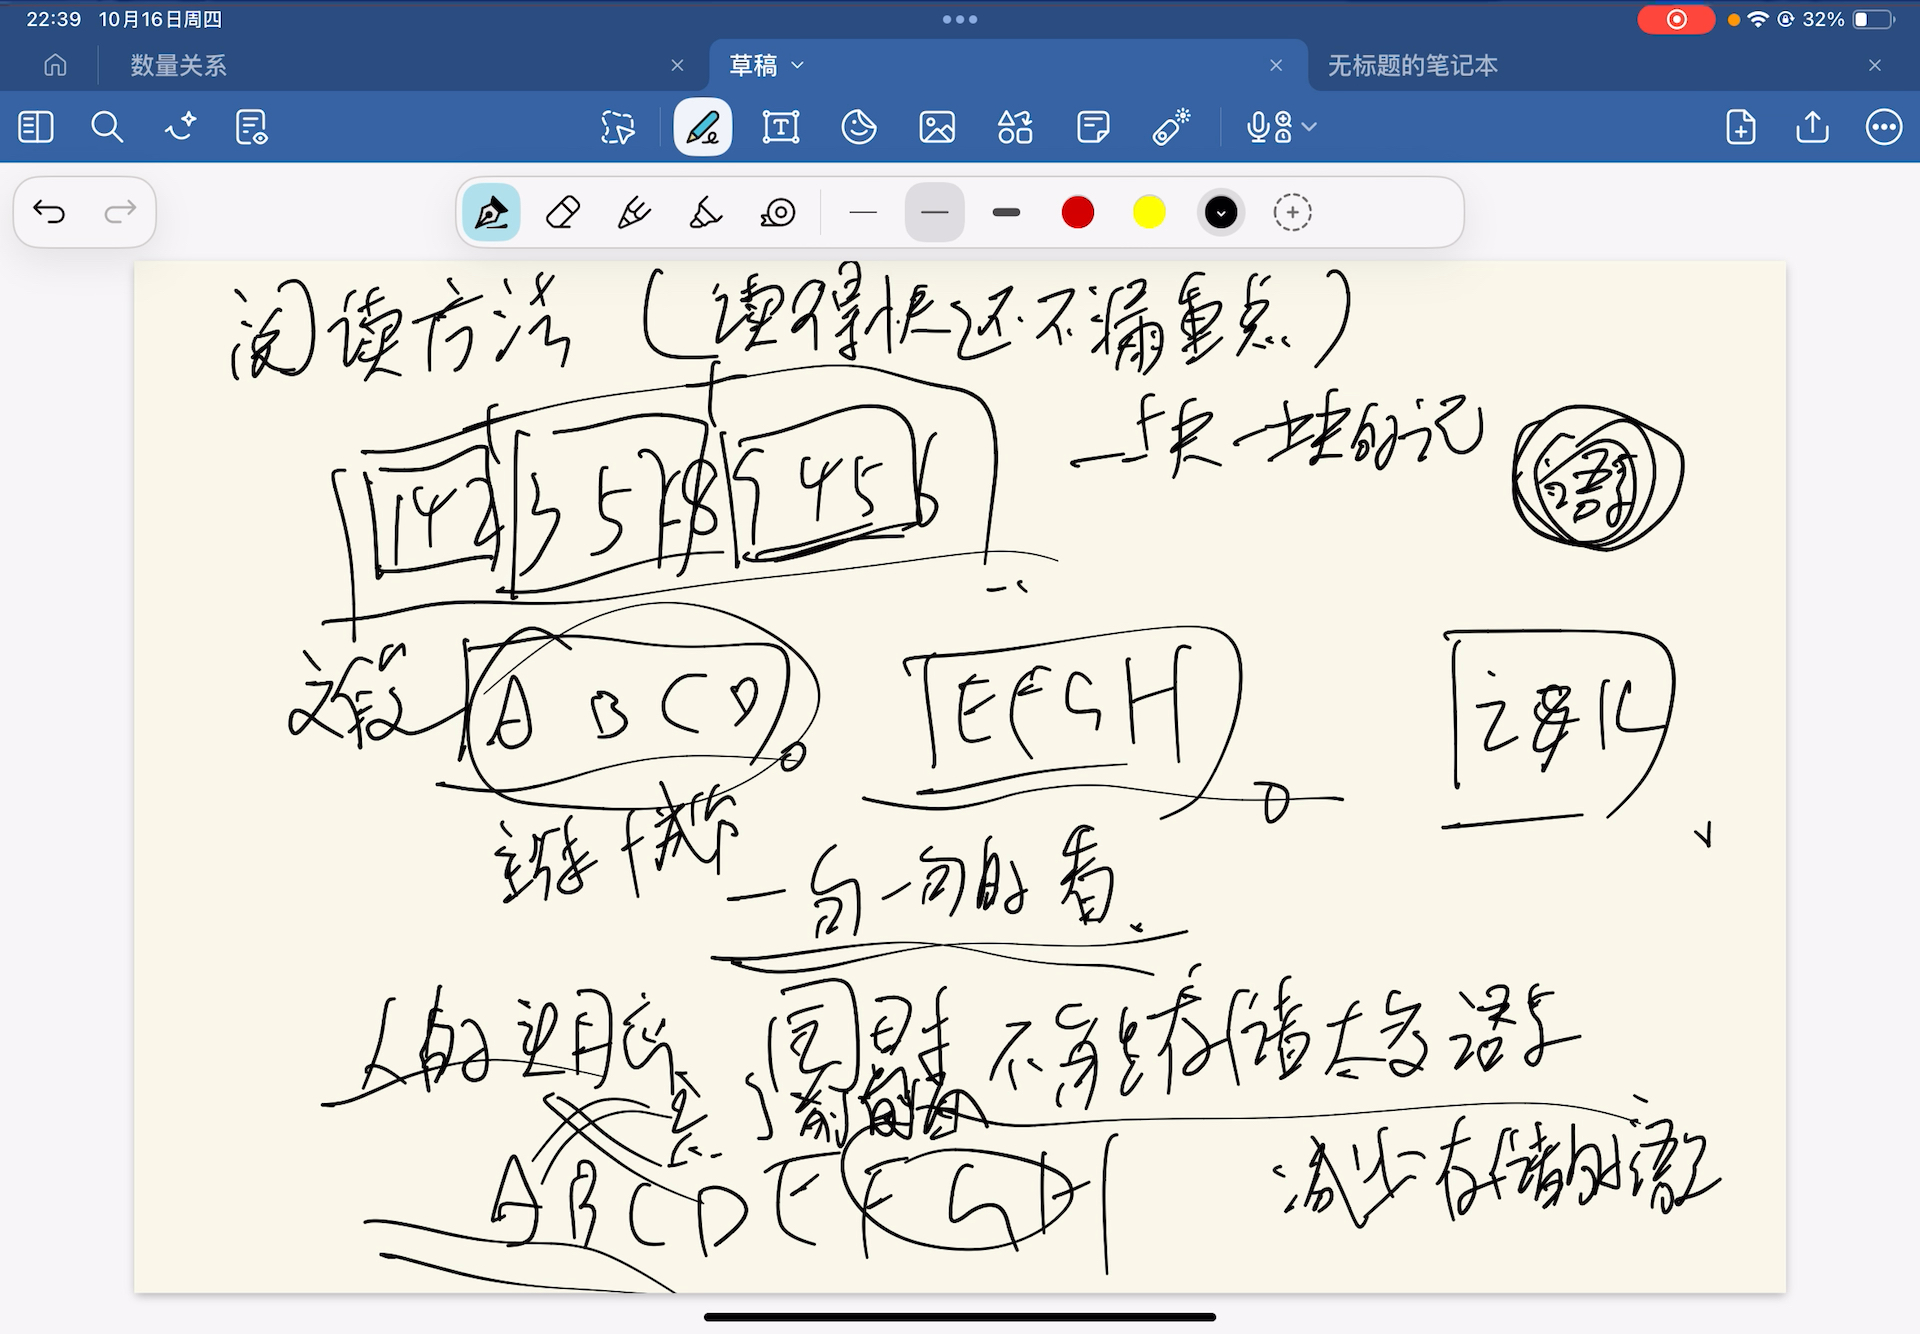 22:39 10月16日周四
32%
数量关系
草稿
无标题的笔记本
阅读方法（读得快还不漏重点）
一块一块的记
语
142 3578 5 456
文段 A B C D 。 E F G H 。
一句一句的看
人的 同时不能存储太多语
前 的
A B C D E F G H
减少存储的语